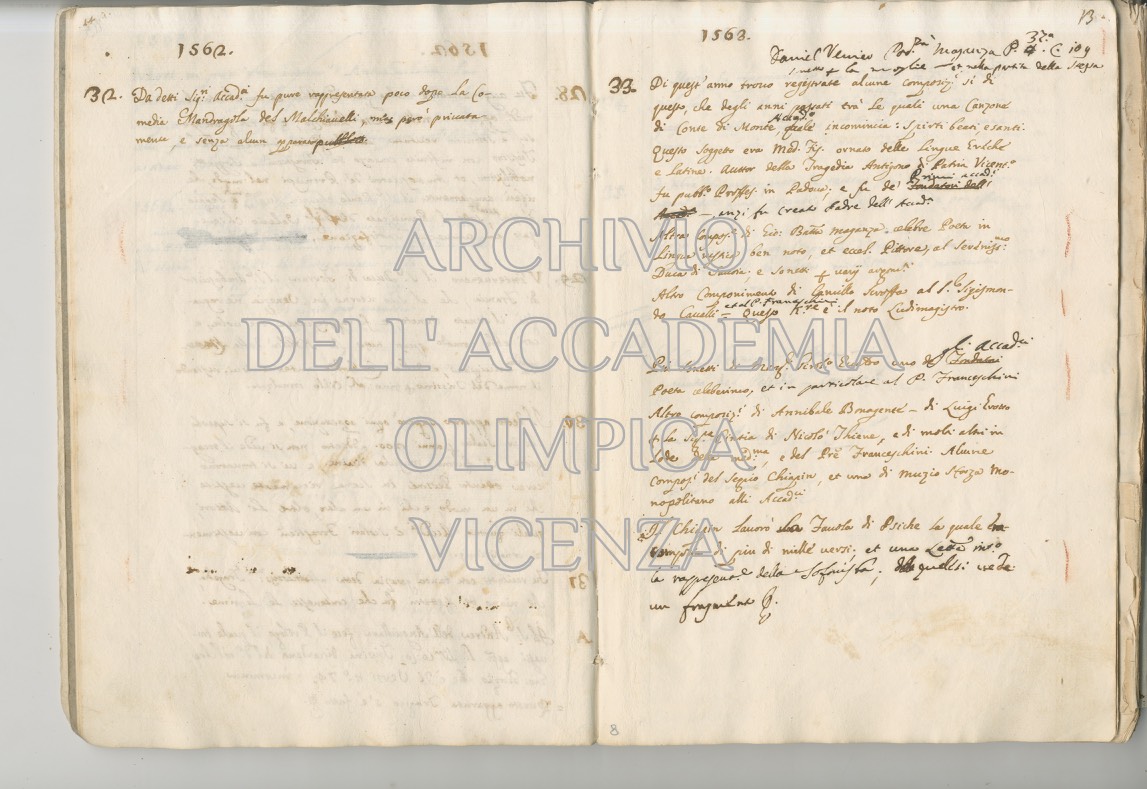 1562.
32. Da detti Sig.ri Accad.ci fu pure rappresentata poco dopo La Co-
media Mandragola del Malchiavelli, ma però privata
mente, e senza alcun apparato pubblico.
13
1563.
Daniel Venier Maganza P. 37.a 4. C. 109
la moglie — et nella partita della
33. Di quest'anno trovo registrate alcune composiz.i sì di
questo, che degli anni passati trà le quali una Canzone
di Conte di Monte, Accad.o quale incomincia: Spirti beati, e santi.
Questo Soggetto era Med. Fis. ornato delle Lingue Greche
e Latine. Auttor della Tragedia Antigono di Patria Vicent.o
fu pubb.o Profess. in Padova; e fu de' Primi accad.ci Fondatori dell'
Accad.a — anzi fu creato Padre dell'Accad.a
Altra Compos.e di Gio: Batta Maganza celebre Poeta in
Lingua rustica ben noto, et eccel. Pittore, al Serenis.mo
Duca di Savoia, e Sonetti varij argom.ti
Altro Componimento di Camillo Scroffa al S. Sigismon-
do Cavalli et al P. Franceschini — Questo è il noto Ludimagistro.
Più Sonetti di uno de' Accad.ci Fondatori
Poeta celeberimo, et in particolare al P. Franceschini
Altre composiz.i di Annibale Bonagente — di Luigi Grotto
la Sig.ra Cintia di Nicolò Thiene, e di molti altri in
Lode della med.ma, e del Pre Franceschini. Alcune
Compos.i del Secco Chiapin, et una di Muzio Sforza Mo-
nopolitano alli Accad.ci
Il Chiapin Lavorò La Favola di Psiche la quale
composta di più di mille versi, et una Lett.a
la rappresent.e della Sofonisba; quali si vede
un fragmento
8
ARCHIVIO
DELL' ACCADEMIA
OLIMPICA
VICENZA